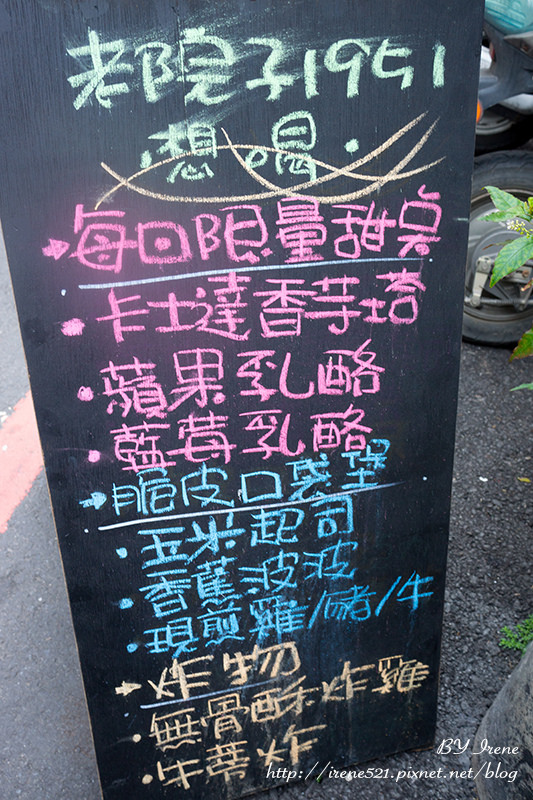 老院子1951
·想喝·
→每日限量甜桌
·卡士達香芋塔
·蘋果乳酪
·藍莓乳酪
→脆皮口袋堡
·玉米起司
·香蕉波波
·現煎雞/豬/牛
→炸物
·無骨酥炸雞
·牛蒡炸
BY Irene
http://irene521.pixnet.net/blog